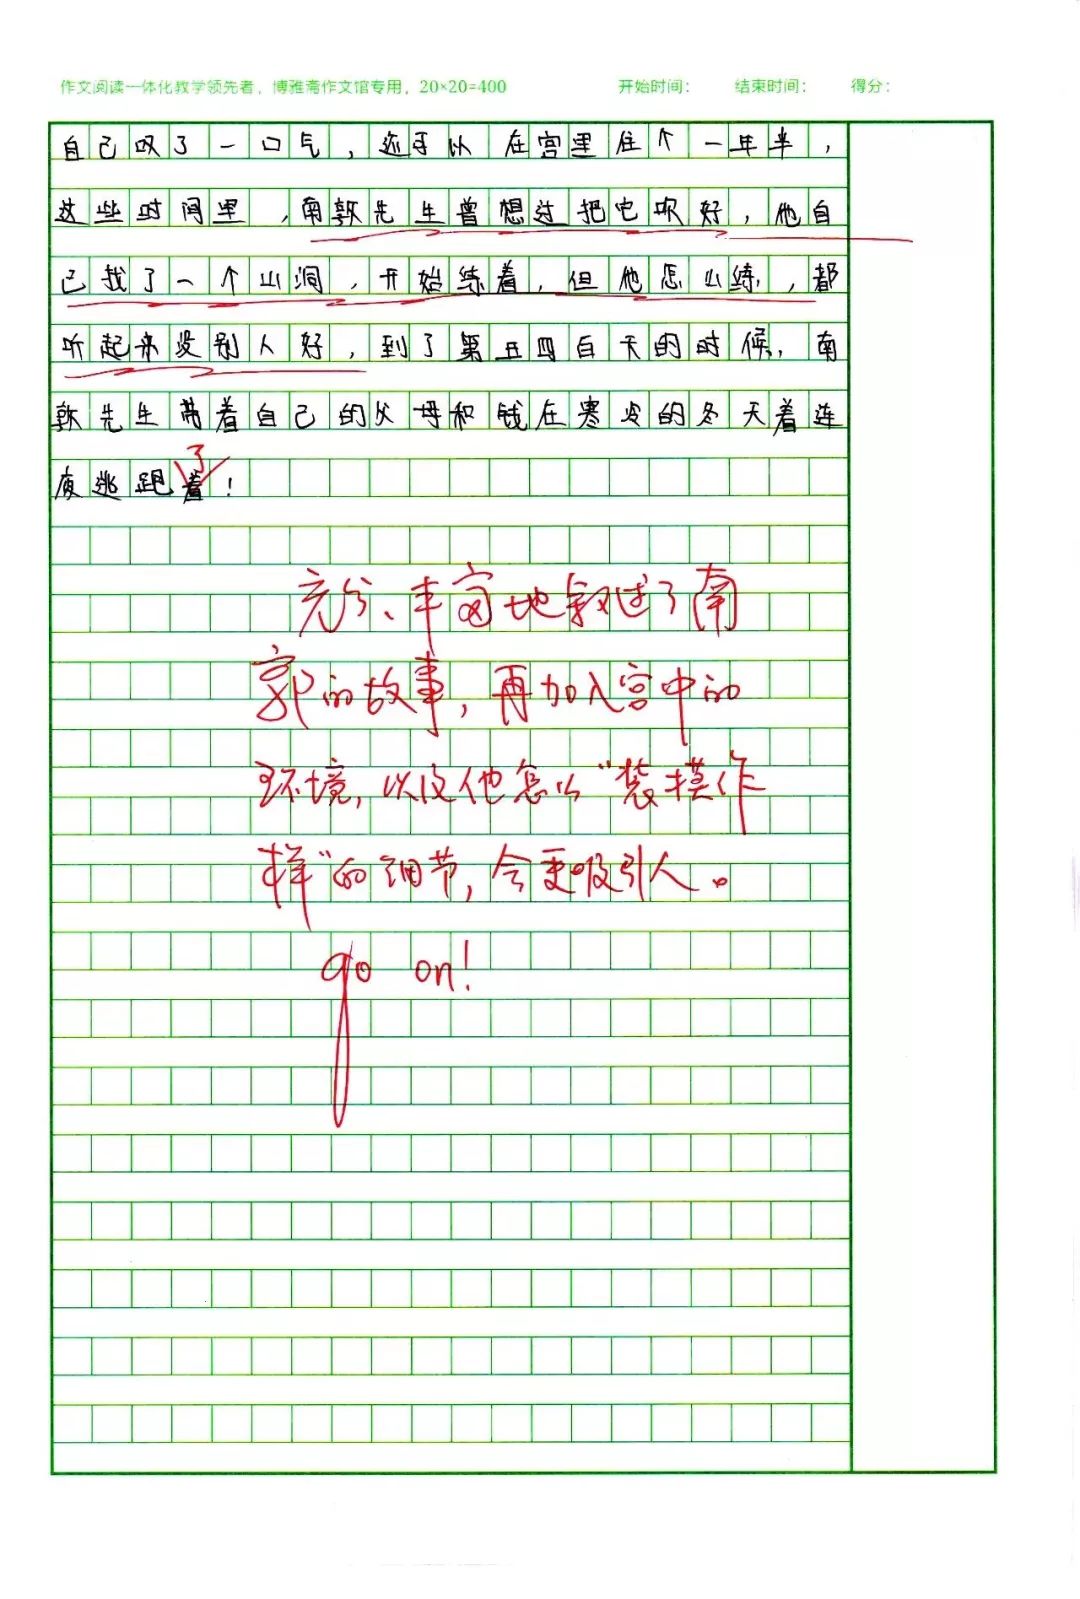 作文阅读一体化教学领先者，博雅斋作文馆专用，20×20=400 开始时间： 结束时间： 得分：
自己叹了一口气，还可以在宫里住个一年半，
这些时间里，南郭先生曾想过把它吹好，他自
己找了一个山洞，开始练着，但他怎么练，都
听起来没别人好，到了第五四百天的时候，南
郭先生带着自己的父母和钱在寒冷的冬天着连
夜逃跑着！
了
充分、丰富地叙述了南
郭的故事，再加入宫中的
环境，以及他怎么“装模作
样”的细节，会更吸引人。
go on!